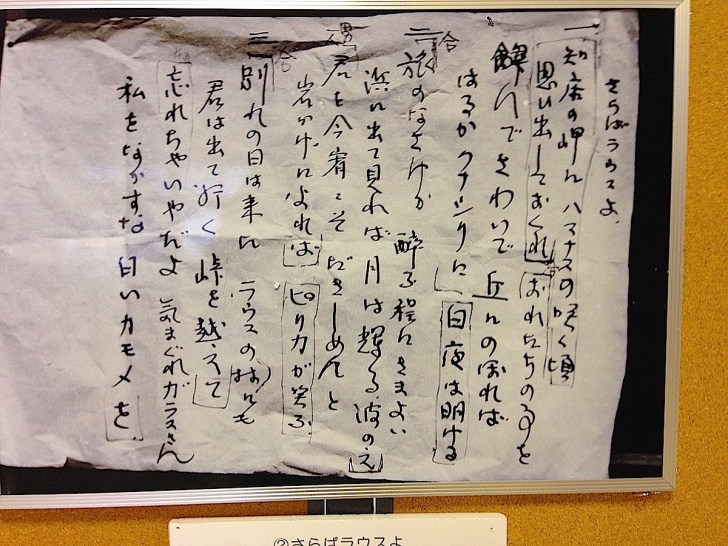 さらばラウスよ
一 知床の岬に ハマナスの咲く頃
思い出しておくれ おれたちの事を
飲んでさわいで 丘にのぼれば
はるか クナシリに 白夜は明ける
二 旅のなさけか 酔う程にさまよい
浜に出て見れば 月は輝る波のえ
男
君を今宵こそ だきしめんと
岩かげによれば ピリカが笑ふ
三 別れの日は来た ラウスの村にも
合
合
君は出て行く 峠を越えて
忘れちゃいやだよ 気まぐれカラスさん
私をなかすな 白いカモメを
②さらばラウスよ